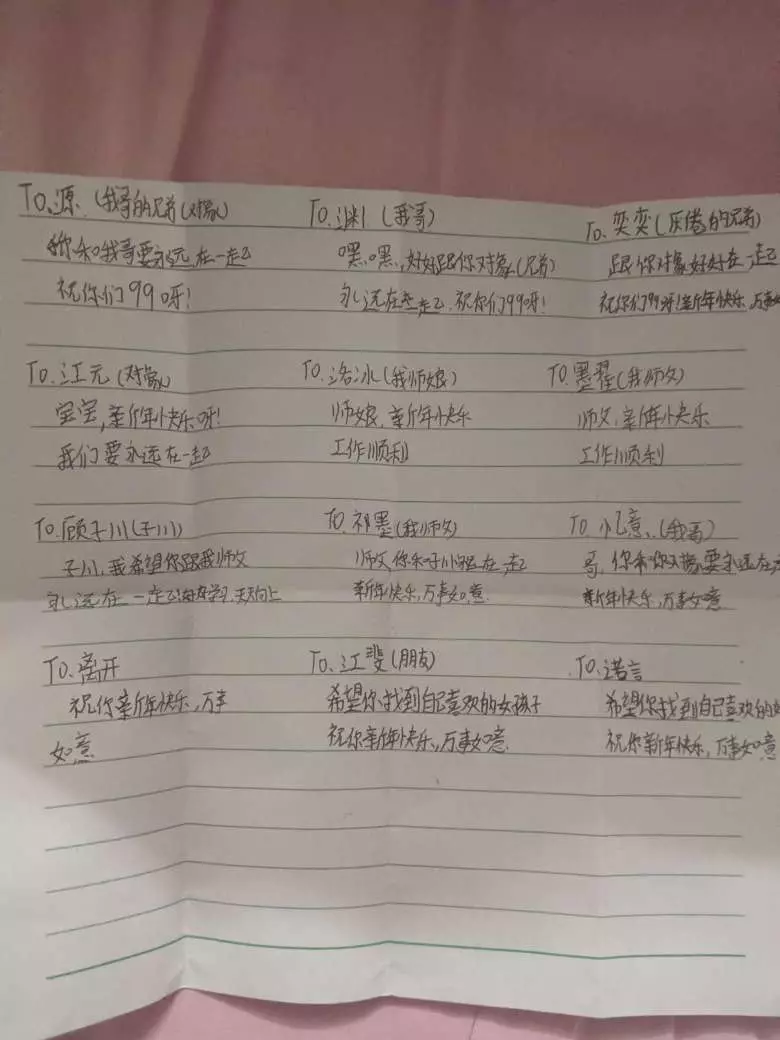 To.源 (我哥的兄弟(对象)
你和我哥要永远在一起
祝你们99呀!
To.渊 (我哥)
嘿嘿,好好跟你对象(兄弟)
永远在一起,祝你们99呀!
To.奕奕(的兄弟)
跟你对象好好在一起
祝你们99呀!新年快乐,万事
To.江元(对象)
宝宝,新年快乐呀!
我们要永远在一起
To.洛冰(我师娘)
师娘,新年快乐
工作顺利
To.墨翟(我师父)
师父,新年快乐
工作顺利
To.顾子川(子川)
子川,我希望你跟我师父
永远在一起,好好学习,天天向上
To.祁墨(我师父)
师父,你和子川在一起
新年快乐,万事如意
To.忆意(我哥)
哥,你和你对象要永远在
新年快乐,万事如意
To.离开
祝你新年快乐,万事
如意
To.江斐(朋友)
希望你找到自己喜欢的女孩子
祝你新年快乐,万事如意
To.诺言
希望你找到自己喜欢的
祝你新年快乐,万事如意